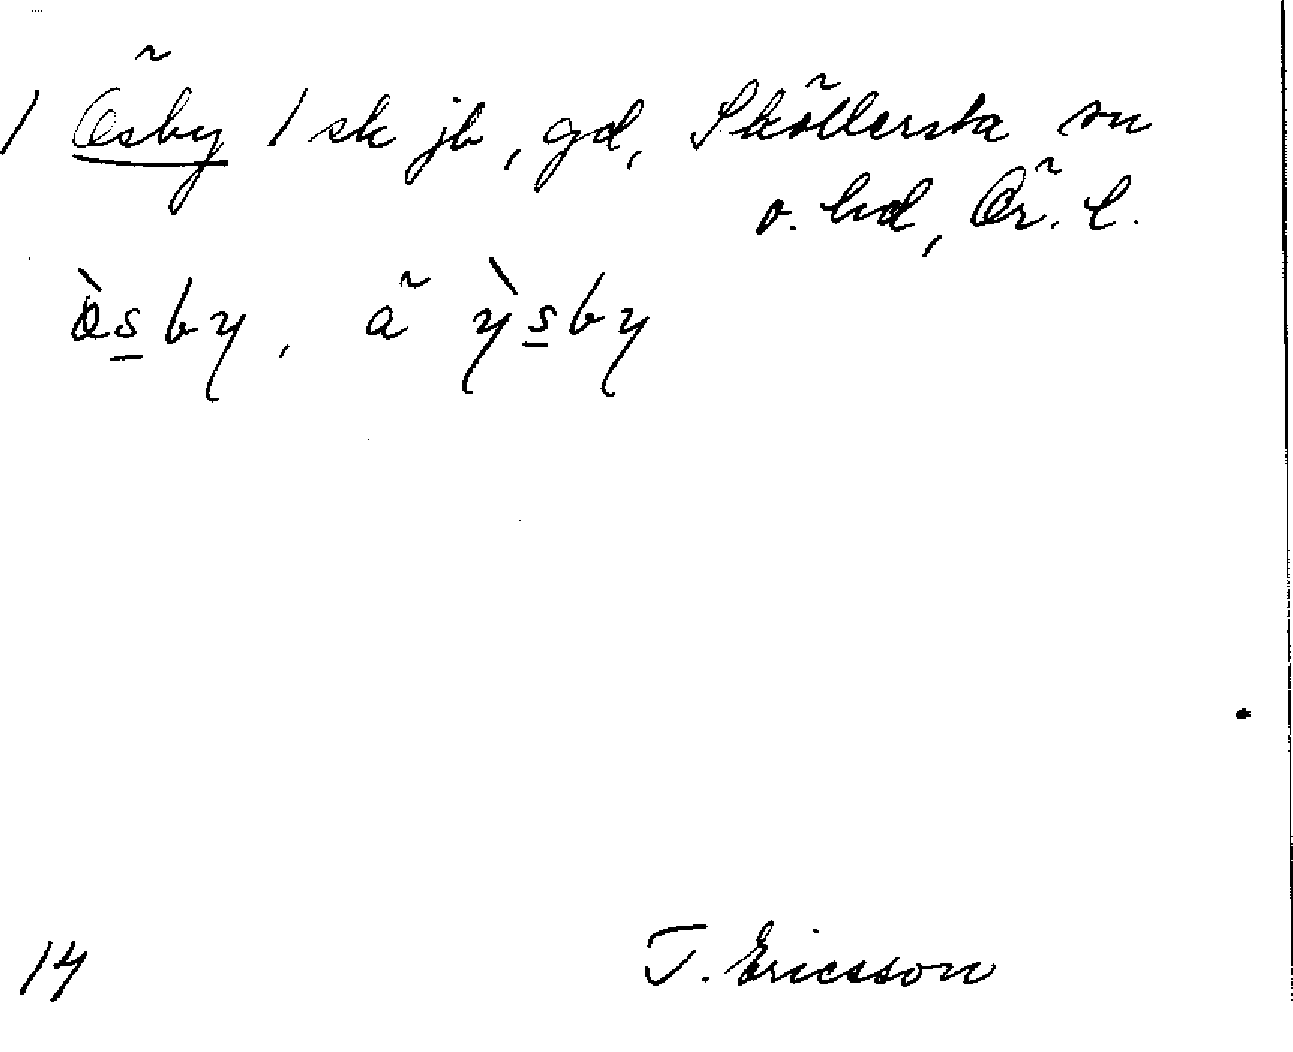 / Ösby / sk jb, gd, Sköllersta sn
o. hd, Ör. l.
ø̀s̲by, ä ỳs̲by
14
T. Ericsson